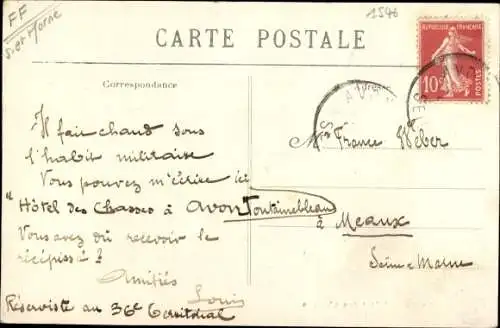 FF
S. et Marne
1546
CARTE POSTALE
REPUBLIQUE FRANÇAISE
10c
POSTES
Correspondance
Adresse
AVON
Il fait chaud sous
l'habit militaire
Vous pouvez m'écrire ici
"Hôtel des Chasses à Avon Fontainebleau
Vous avez dû recevoir le
récépissé?
Amitiés
Louis
Réserviste au 36e territorial
France Weber
à
Meaux
Seine & Marne